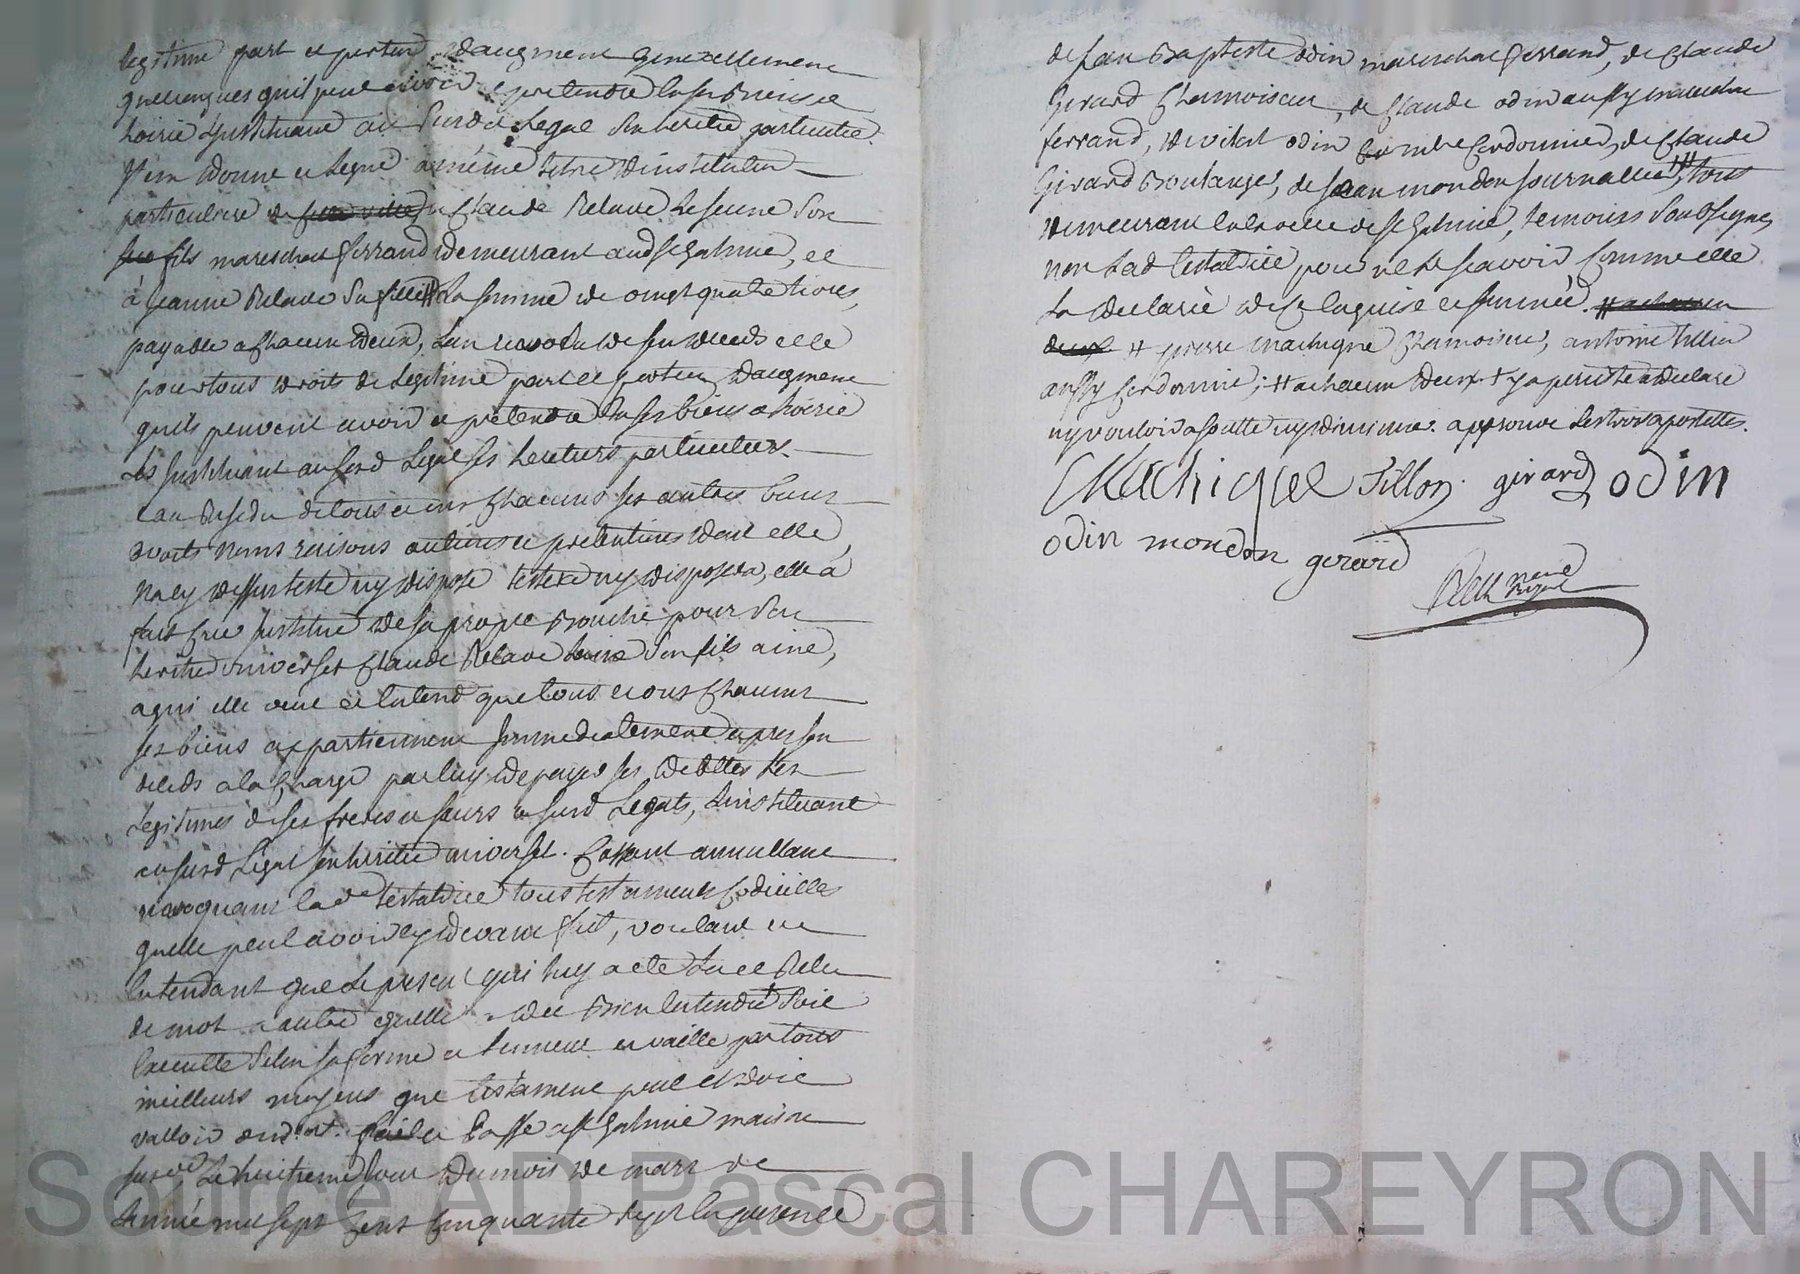 legitime part et portion daugment generallement
quelconques quil peut avoir et pretendre en ses biens et
hoirie linstituant au susdit legat son heritié particulié.
Item donne et legue a meme titre dinstitution
particuliere a Claude Relave le jeune son
fils mareschal ferrand demeurant aud St Galmié, et
à Jeanne Relave sa fille la somme de vingt quatre livres,
payable a chacun deux, lan revolu de son deceds et ce
pour tous droits de legitime part et portion daugment
quils peuvent avoir et pretendre en ses biens et hoirie
les instituant au susd legat ses heritiers particuliers.
et au residu de tous et uns chacuns ses autres biens
droits noms raisons actions et pretentions dont elle
na cy dessus testé ny disposé testera ny disposera, elle a
fait créé institué de sa propre bouche pour son
heritié universel Claude Relave son fils ainé,
a qui elle veut et entend que tous et uns chacuns
ses biens appartiennent immediatement apres son
deceds a la charge par luy de payer ses dettes les
legitimes de ses freres et soeurs et susd legats, linstituant
au susd legat son heritié universel. Cassant annullant
revoquant lade testatrice tous testaments codicilles
quelle peut avoir cy devant fait, voulant et
entendant que le present qui luy a eté lu et relu
de mot a autre quelle a dit bien entendre soit
executé selon sa forme et teneur et vaille par tous
meilleurs moyens que testament peut et doit
valloir de droit. fait et passé a St Galmié maison
susde le huitieme jour du mois de mars de
lannée mil sept cent cinquante sept en presence
de Jean Baptiste odin mareschal ferrand, de Claude
Girard Chamoiseur, de Claude odin aussy mareschal
ferrand, de vital odin Cordonnier, de Claude
Girard Boulanger, de Jean mondon journallié, tous
demeurant en la ville de St Galmié, temoins soubsignes,
non lad testatrice pour ne le scavoir comme elle
la declaré de ce enquise et sommée.
pierre machiqué Chamoiseur, antoine tillon
aussy Cordonnié; a chacun deux y a persisté a declaré
ny vouloir ajoutter ny diminuer. approuvé les trois apostilles.
Machiquel Tillon girard odin
odin mondon gerard